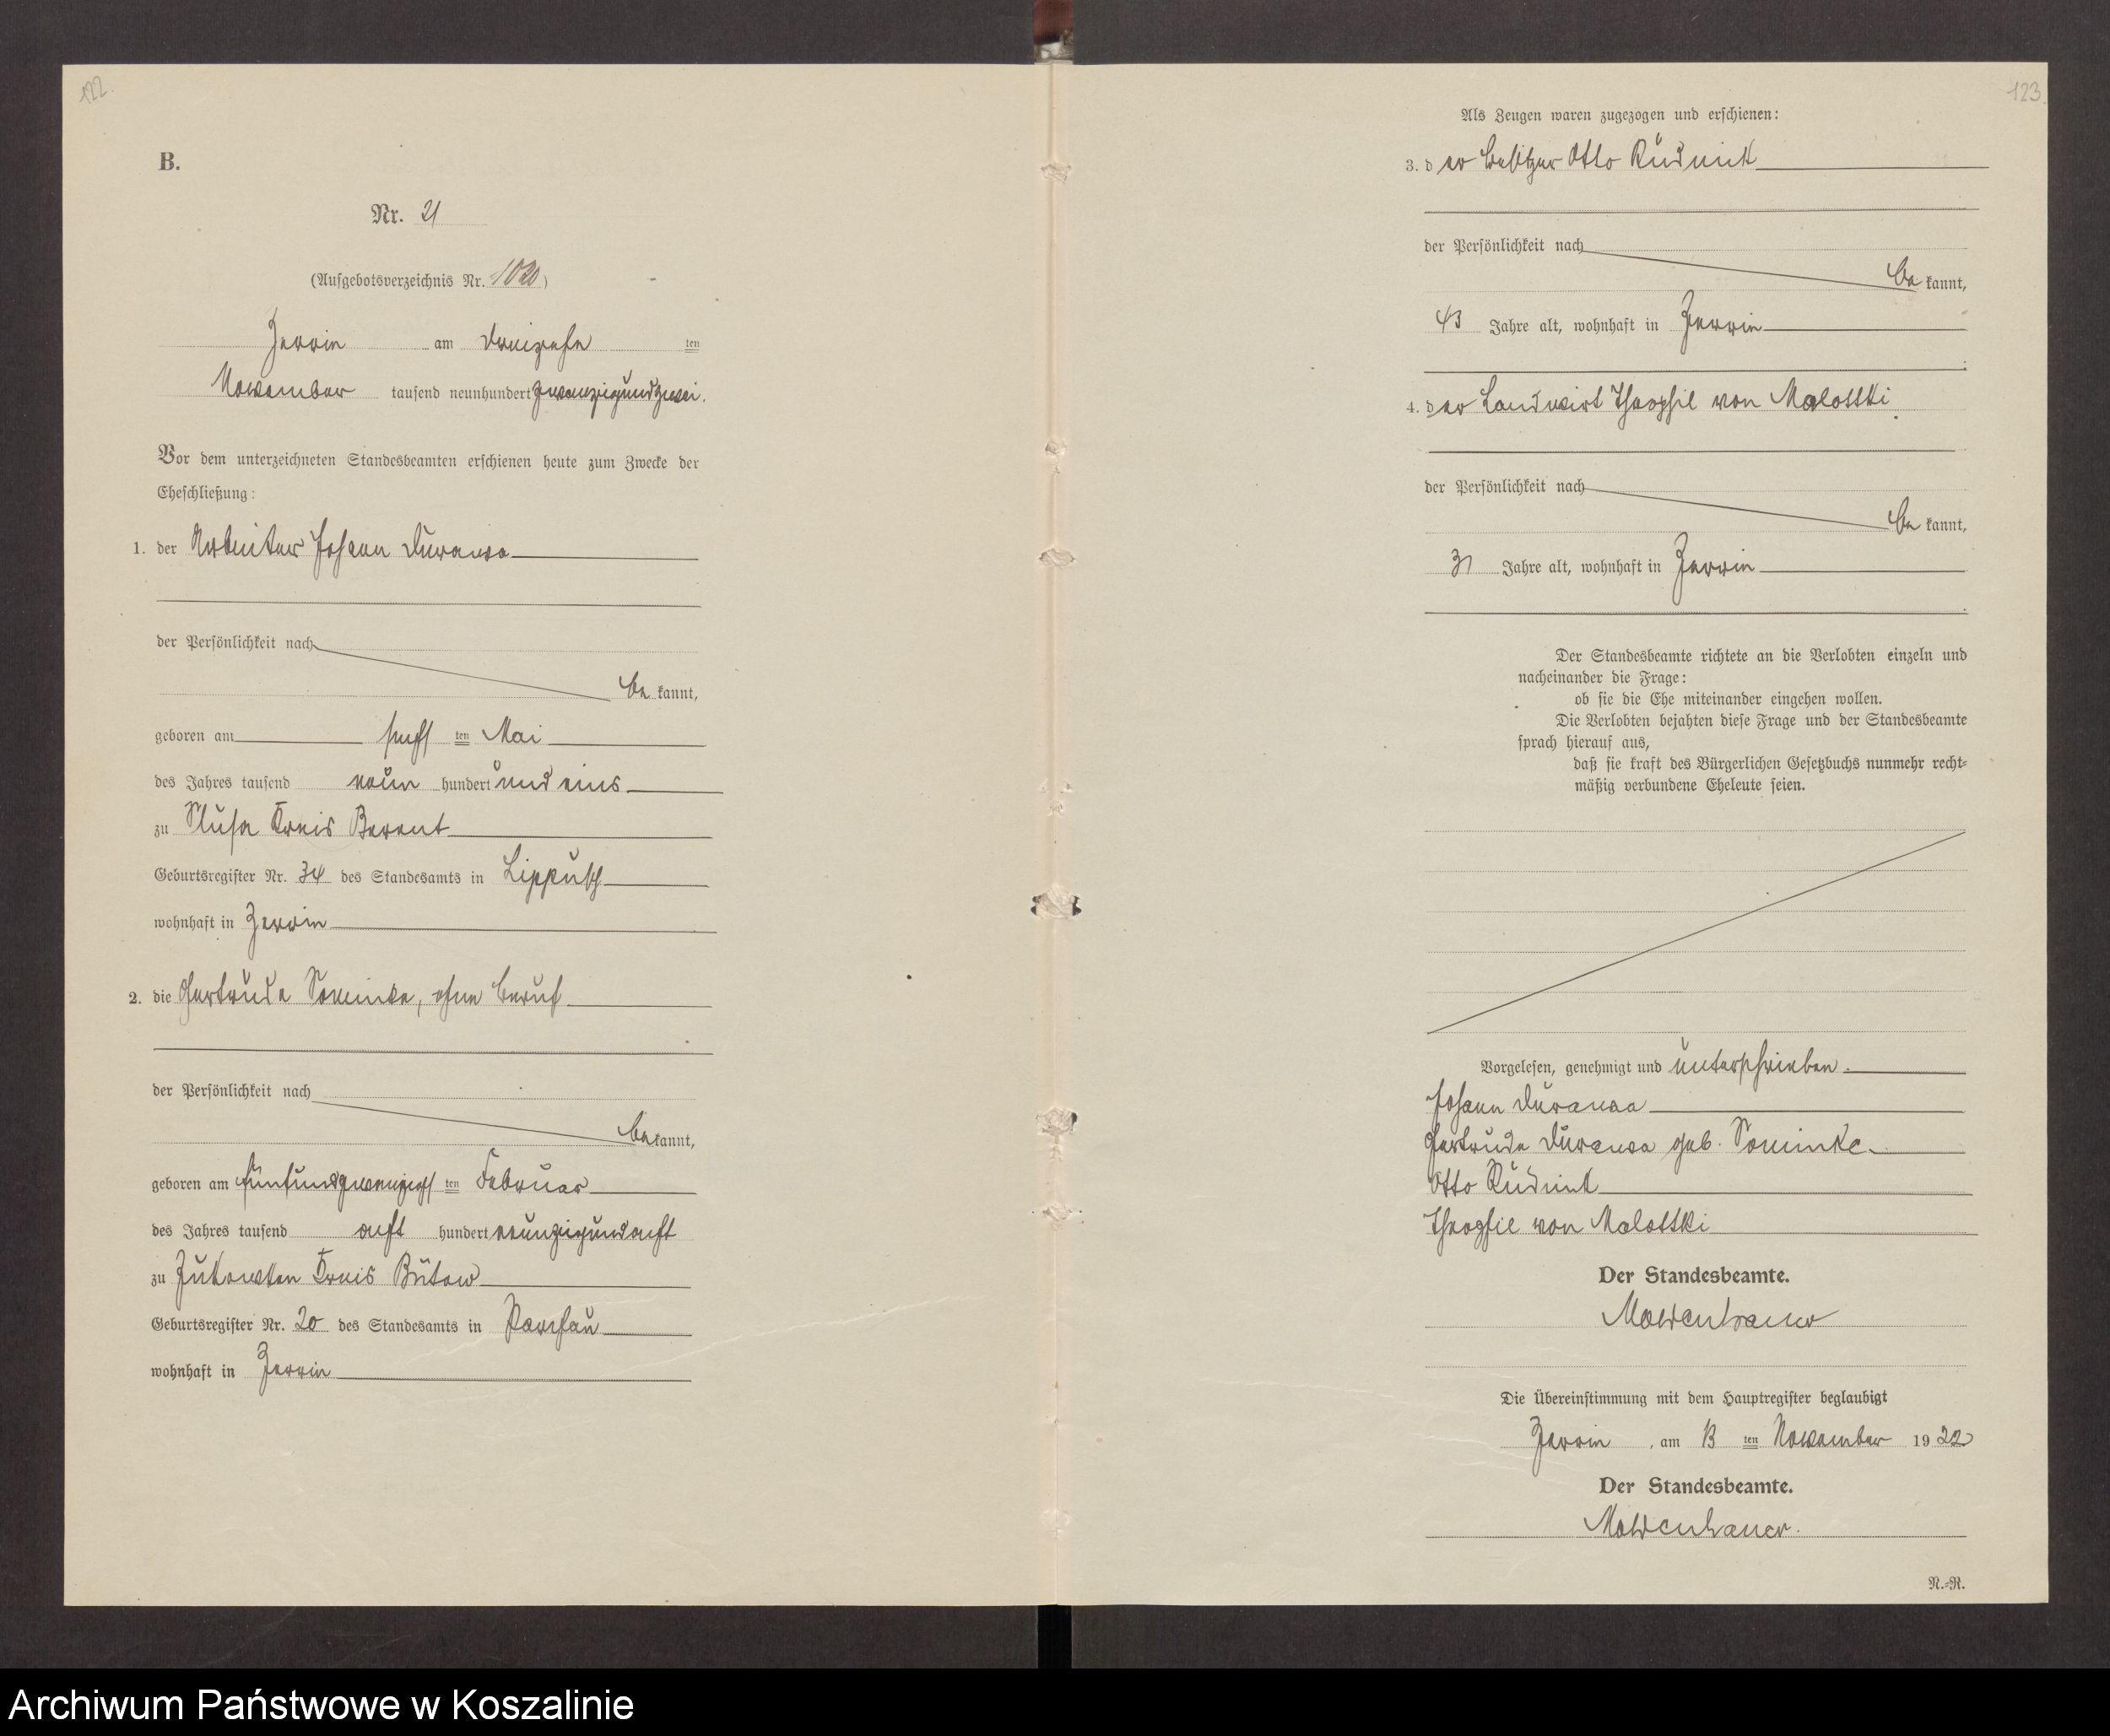 122.
B.
Nr. 21
(Aufgebotsverzeichnis Nr. 1020)
Zerrin am dreizehn ten
November tausend neunhundert zwanzigundzwei.
Vor dem unterzeichneten Standesbeamten erschienen heute zum Zwecke der
Eheschließung:
1. der Arbeiter Johann Durawa
der Persönlichkeit nach
be kannt,
geboren am sechs ten Mai
des Jahres tausend neun hundert und eins
zu Slusa Kreis Berent
Geburtsregister Nr. 34 des Standesamts in Lippusch
wohnhaft in Zerrin
2. die Gertrude Sominke, ohne Beruf
der Persönlichkeit nach
be kannt,
geboren am fünfundzwanzigs ten Februar
des Jahres tausend acht hundert neunzigundacht
zu Zukowken Kreis Bütow
Geburtsregister Nr. 20 des Standesamts in Parchau
wohnhaft in Zerrin
123.
Als Zeugen waren zugezogen und erschienen:
3. der Besitzer Otto Rudnick
der Persönlichkeit nach
be kannt,
43 Jahre alt, wohnhaft in Zerrin
4. der Landwirt Theophil von Malottki
der Persönlichkeit nach
be kannt,
31 Jahre alt, wohnhaft in Zerrin
Der Standesbeamte richtete an die Verlobten einzeln und
nacheinander die Frage:
ob sie die Ehe miteinander eingehen wollen.
Die Verlobten bejahten diese Frage und der Standesbeamte
sprach hierauf aus,
daß sie kraft des Bürgerlichen Gesetzbuchs nunmehr recht-
mäßig verbundene Eheleute seien.
Vorgelesen, genehmigt und unterschrieben.
Johann Durawa
Gertrude Durawa geb. Sominke
Otto Rudnick
Theophil von Malottki
Der Standesbeamte.
Moldenhauer
Die Übereinstimmung mit dem Hauptregister beglaubigt
Zerrin, am 13 ten November 1922
Der Standesbeamte.
Moldenhauer.
N.-R.
Archiwum Państwowe w Koszalinie